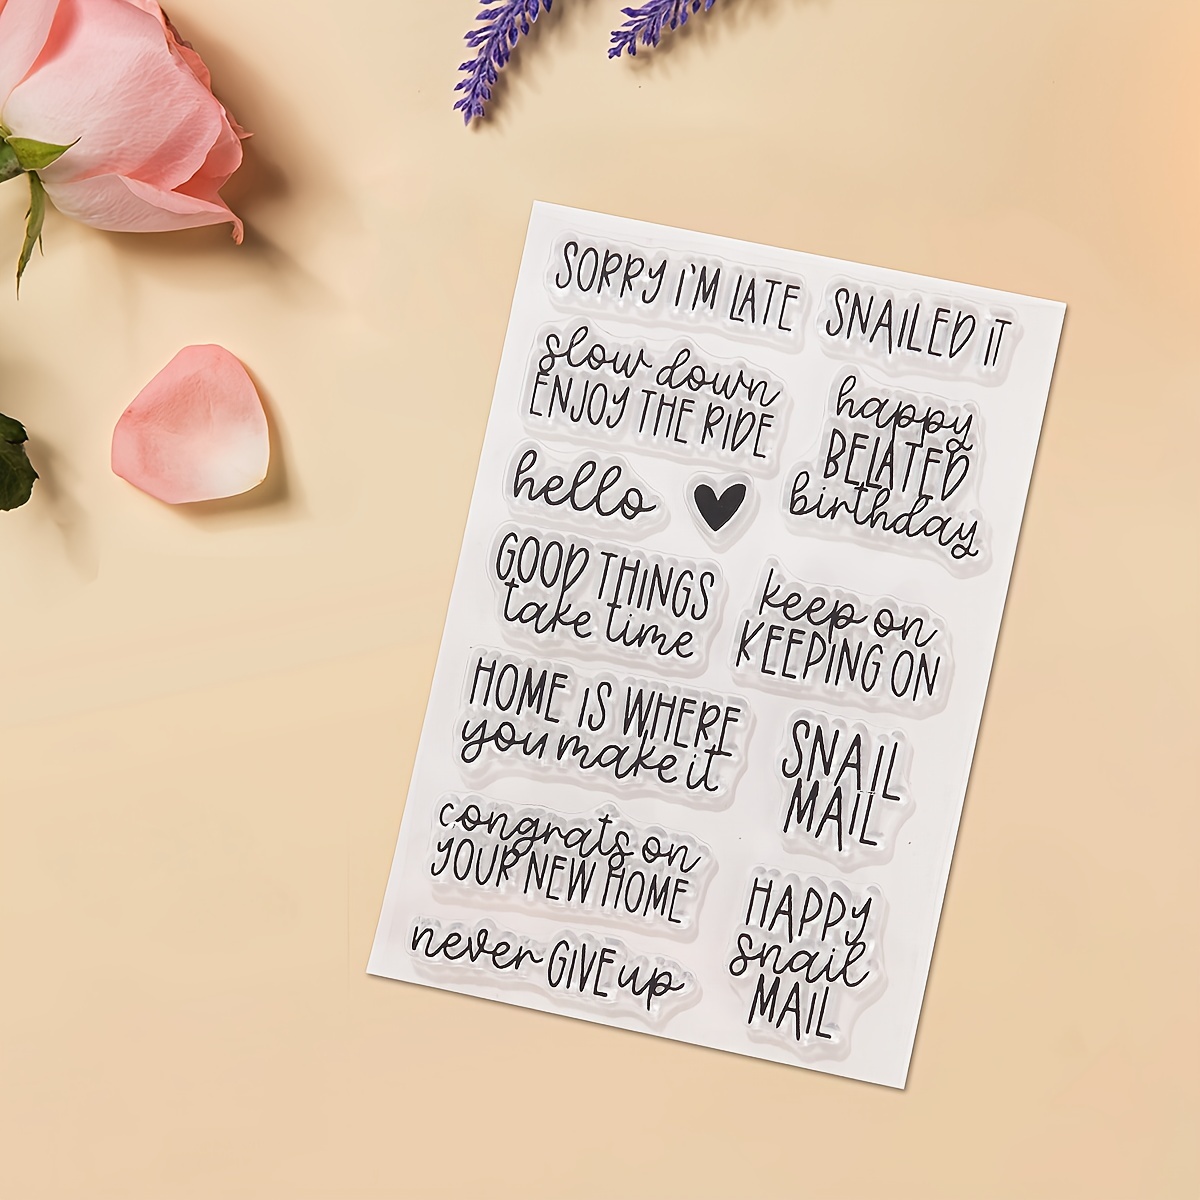 SORRY i'M LATE
SNAILED iT
slow down
ENJOY THE RIDE
happy
BELATED
birthday
hello
GOOD THINGS
take time
keep on
KEEPING ON
HOME iS WHERE
you make it
SNAIL
MAIL
congrats on
YOUR NEW HOME
HAPPY
snail
MAIL
never GIVE up